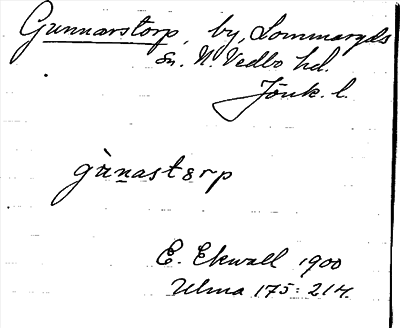 Gunnarstorp, by, Lommaryds
sn. N. Vedbo hd.
Jönk. l.
gùnastɛrp
E. Ekwall 1900
Ulma 175: 214.